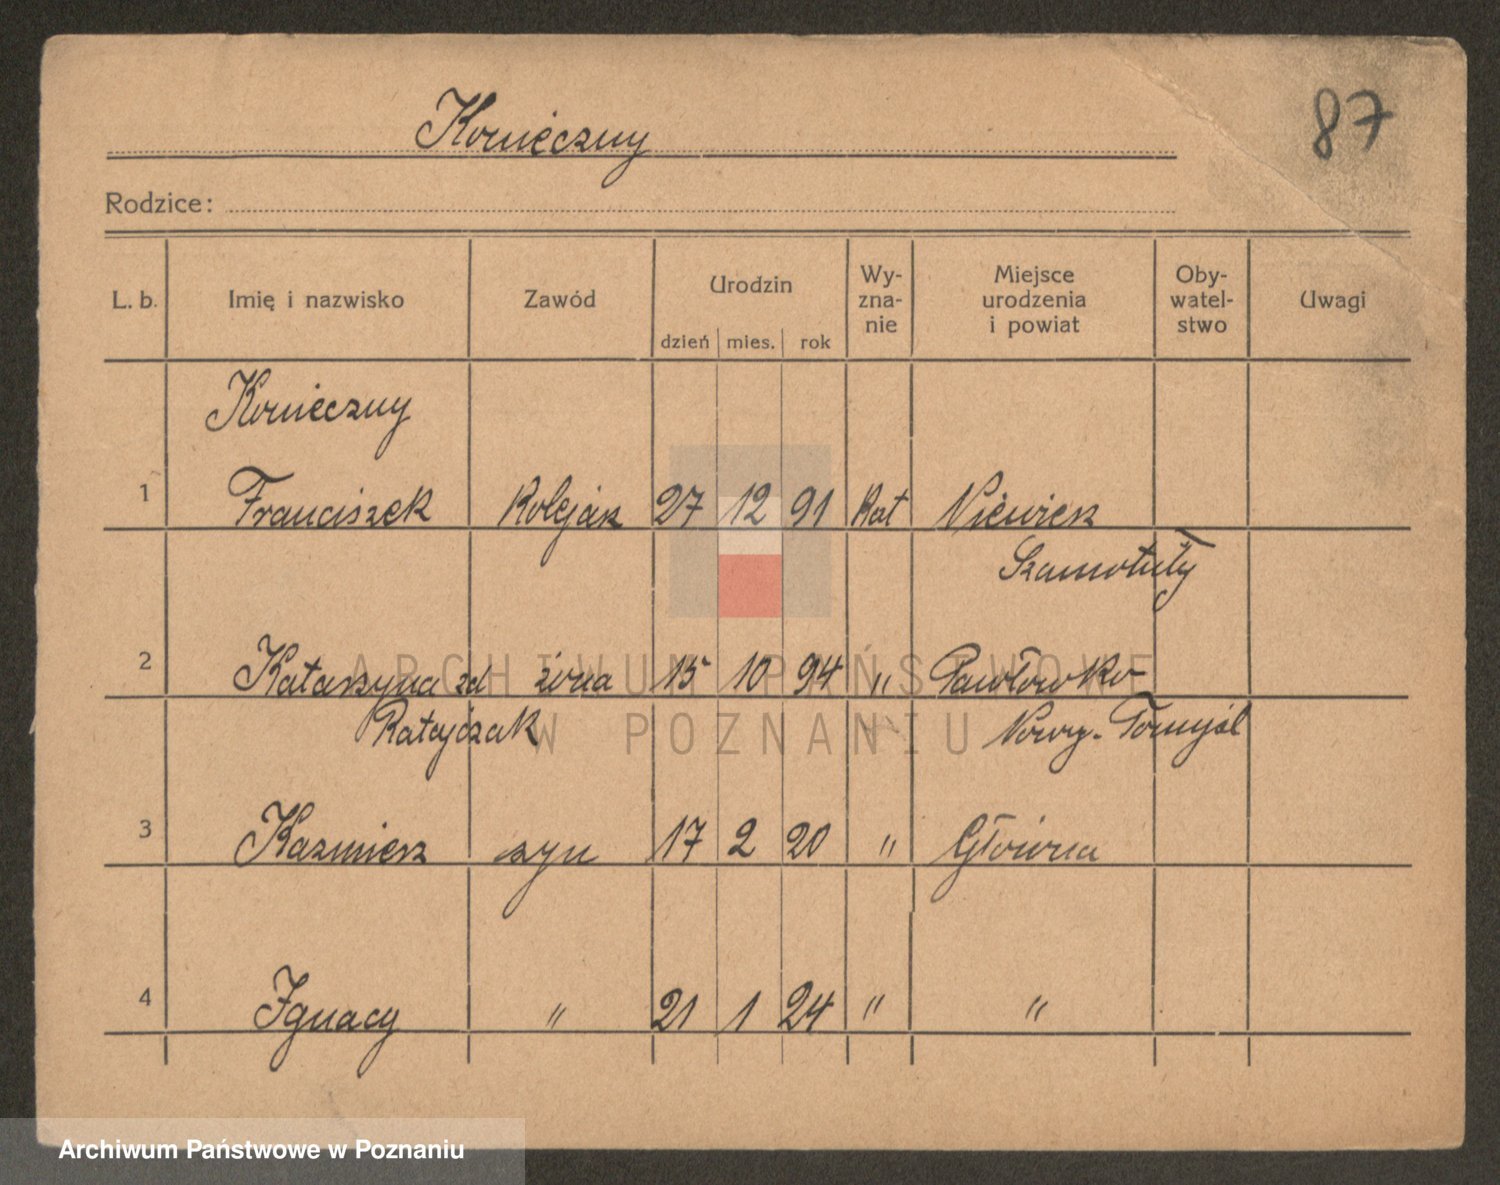 87
Konieczny
Rodzice:
L. b. Imię i nazwisko Zawód Urodzin dzień mies. rok Wy-zna-nie Miejsce urodzenia i powiat Oby-watel-stwo Uwagi
Konieczny
1 Franciszek Kolejarz 27 12 91 Kat Niewierz
Szamotuły
2 Katarzyna zd żona 15 10 94 " Pawłówko
Ratajczak Nowy-Tomyśl
3 Kazmierz syn 17 2 20 " Główna
4 Ignacy " 21 1 24 " "
ARCHIWUM PAŃSTWOWE
W POZNANIU
Archiwum Państwowe w Poznaniu